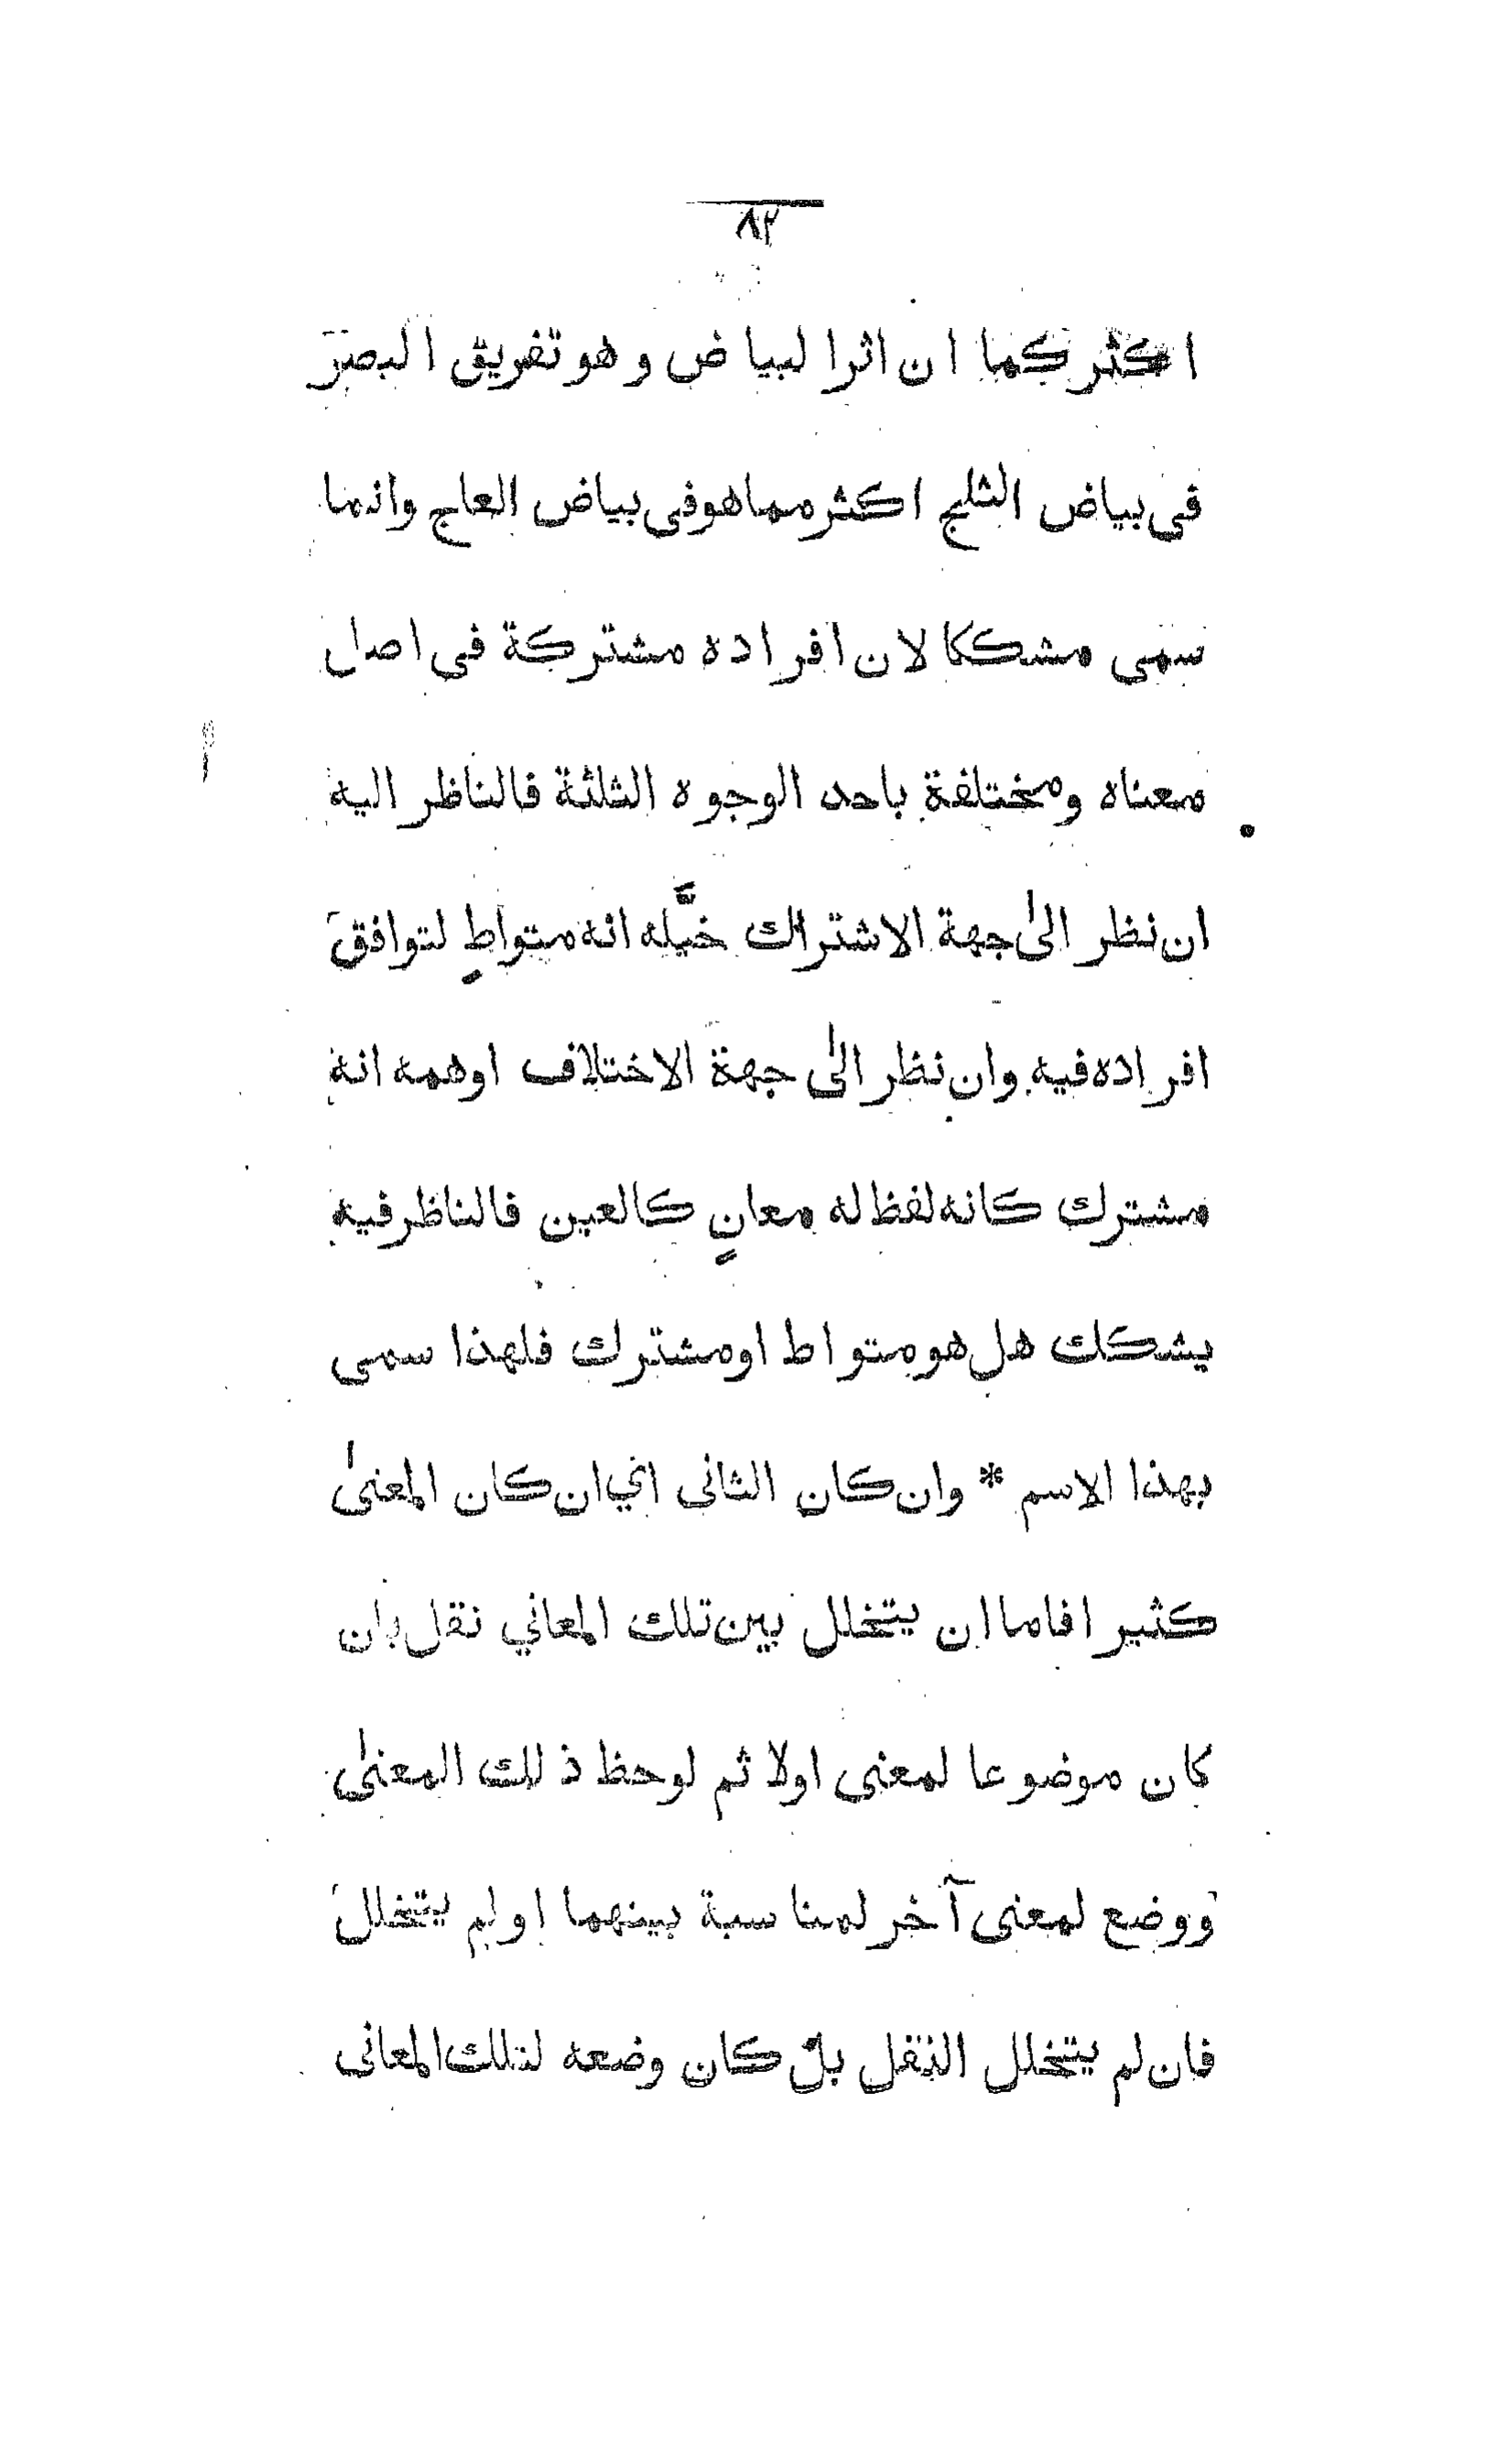 ٨٢
اكثر كما ان اثر البياض وهو تفريق البصر
فى بياض الثلج اكثر مما هو فى بياض العاج وانما
سمى مشككا لان افراده مشتركة فى اصل
معناه ومختلفة باحد الوجوه الثلثة فالناظر اليه
ان نظر الىٰ جهة الاشتراك خيَّله انه متواطٍ لتوافق
افراده فيه وان نظر الىٰ جهة الاختلاف اوهمه انه
مشترك كانه لفظ له معانٍ كالعين فالناظر فيه
يشكك هل هو متواط او مشترك فلهذا سمى
بهذا الاسم * وان كان الثانى اي ان كان المعنىٰ
كثيرا فاما ان يتخلل بين تلك المعاني نقل بان
كان موضوعا لمعنى اولا ثم لوحظ ذلك المعنىٰ
ووضع لمعنى آخر لمناسبة بينهما او لم يتخلل
فان لم يتخلل النقل بل كان وضعه لتلك المعانى